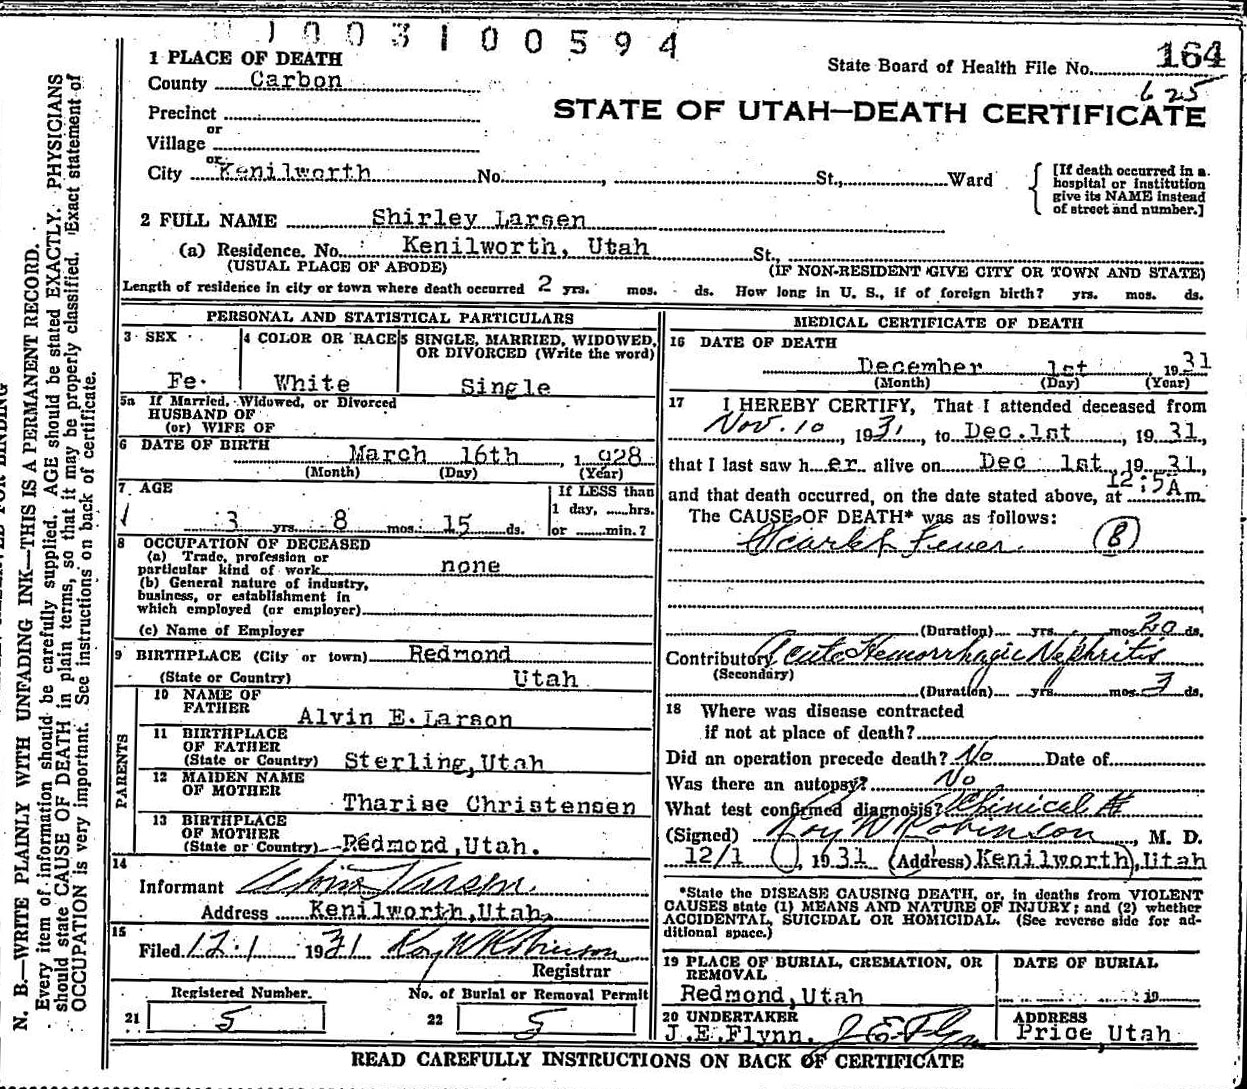 1003100594
1 PLACE OF DEATH
State Board of Health File No. 164
625
County Carbon
STATE OF UTAH—DEATH CERTIFICATE
Precinct
or
Village
or
City Kenilworth No. , St., Ward
[If death occurred in a hospital or institution give its NAME instead of street and number.]
2 FULL NAME Shirley Larsen
(a) Residence. No. Kenilworth, Utah St.,
(USUAL PLACE OF ABODE) (IF NON-RESIDENT GIVE CITY OR TOWN AND STATE)
Length of residence in city or town where death occurred 2 yrs. mos. ds. How long in U. S., if of foreign birth? yrs. mos. ds.
PERSONAL AND STATISTICAL PARTICULARS
3 SEX
Fe.
4 COLOR OR RACE
White
5 SINGLE, MARRIED, WIDOWED,
OR DIVORCED (Write the word)
Single
5a If Married, Widowed, or Divorced
HUSBAND OF
(or) WIFE OF
6 DATE OF BIRTH
March 16th, 1928
(Month) (Day) (Year)
7 AGE
3 yrs. 8 mos. 15 ds.
If LESS than
1 day, ......hrs.
or ........min.?
8 OCCUPATION OF DECEASED
(a) Trade, profession or
particular kind of work none
(b) General nature of industry,
business, or establishment in
which employed (or employer)
(c) Name of Employer
9 BIRTHPLACE (City or town) Redmond
(State or Country) Utah
PARENTS
10 NAME OF
FATHER
Alvin E. Larson
11 BIRTHPLACE
OF FATHER
(State or Country) Sterling,Utah
12 MAIDEN NAME
OF MOTHER
Tharise Christensen
13 BIRTHPLACE
OF MOTHER
(State or Country) Redmond,Utah.
14
Informant Alvin Larsen
Address Kenilworth,Utah,
15
Filed 12-1 1931 Roy W Robinson
Registrar
Registered Number. No. of Burial or Removal Permit
21 5 22 5
MEDICAL CERTIFICATE OF DEATH
16 DATE OF DEATH
December 1st, 1931
(Month) (Day) (Year)
17 I HEREBY CERTIFY, That I attended deceased from
Nov. 10, 1931, to Dec.1st, 1931,
that I last saw her alive on Dec 1st, 1931,
and that death occurred, on the date stated above, at 12:5A m.
The CAUSE OF DEATH* was as follows:
Scarlet Fever. (B)
(Duration) yrs. mos. 20 ds.
Contributory Acute Hemorrhagic Nephritis
(Secondary)
(Duration) yrs. mos. 3 ds.
18 Where was disease contracted
if not at place of death?
Did an operation precede death? No Date of
Was there an autopsy? No
What test confirmed diagnosis? Clinical
(Signed) Roy W Robinson, M. D.
12/1, 1931 (Address) Kenilworth,Utah
*State the DISEASE CAUSING DEATH, or, in deaths from VIOLENT
CAUSES state (1) MEANS AND NATURE OF INJURY; and (2) whether
ACCIDENTAL, SUICIDAL OR HOMICIDAL. (See reverse side for ad-
ditional space.)
19 PLACE OF BURIAL, CREMATION, OR
REMOVAL
Redmond,Utah
DATE OF BURIAL
19
20 UNDERTAKER
J.E.Flynn. J E Flynn
ADDRESS
Price,Utah
READ CAREFULLY INSTRUCTIONS ON BACK OF CERTIFICATE
N. B.—WRITE PLAINLY WITH UNFADING INK—THIS IS A PERMANENT RECORD.
Every item of information should be carefully supplied. AGE should be stated EXACTLY. PHYSICIANS
should state CAUSE OF DEATH in plain terms, so that it may be properly classified. Exact statement of
OCCUPATION is very important. See instructions on back of certificate.